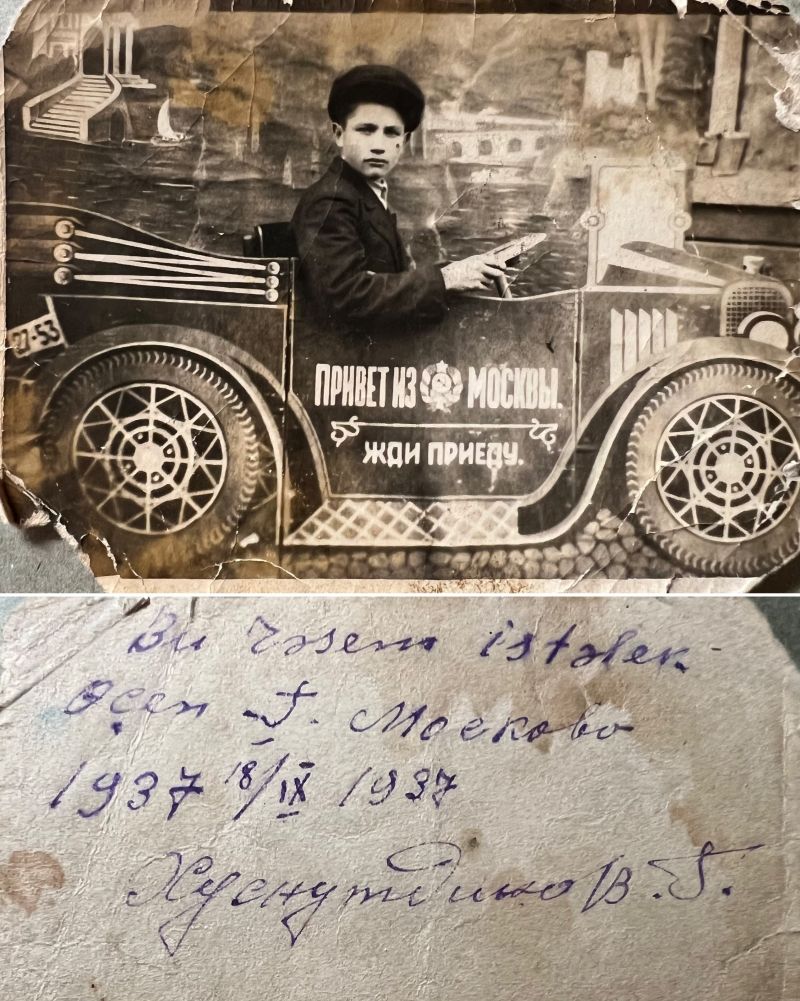 27-53
ПРИВЕТ ИЗ МОСКВЫ.
ЖДИ ПРИЕДУ.
Bu rəsem istəlek
Өçen Г. Москово
1937 18/IX 1937
Хуснутдинов В.Г.